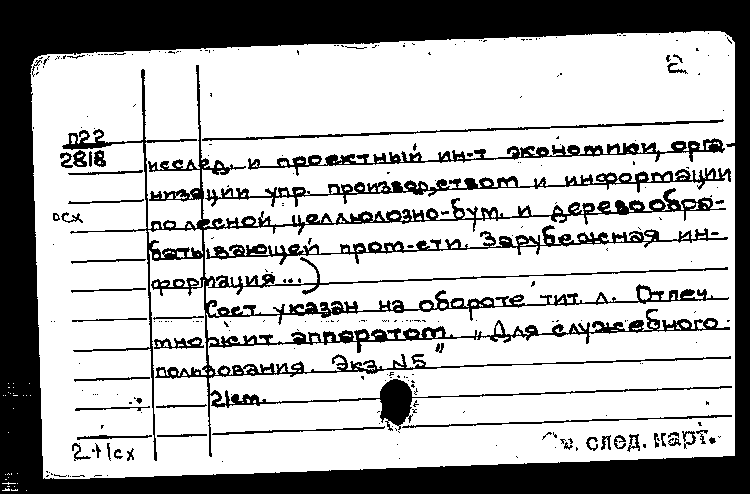 2
П22
2818
исслед. и проектный ин-т экономики, орга-
низации упр. производством и информации
осх
по лесной, целлюлозно-бум. и деревообра-
батывающей пром-сти. Зарубежная ин-
формация...)
Сост. указан на обороте тит. л. Отпеч.
множит. аппаратом. „Для служебного
пользования. Экз. N5"
21см.
2+1сх
См. след. карт.